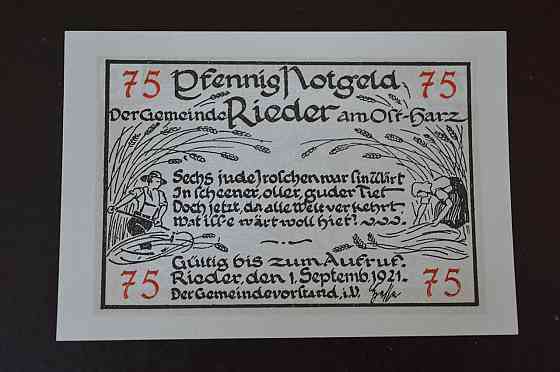 75 Pfennig Notgeld 75
Der Gemeinde Rieder am Ost-Harz
Sechs jude Jroschen war sin Wärt
In scheener, oller, guder Tiet
Doch jetzt, da alle Welt verkehrt,
Wat is'e wärt woll hiet?
Gültig bis zum Aufruf.
75 Rieder, den 1. Septemb. 1921. 75
Der Gemeindevorstand, i.V.